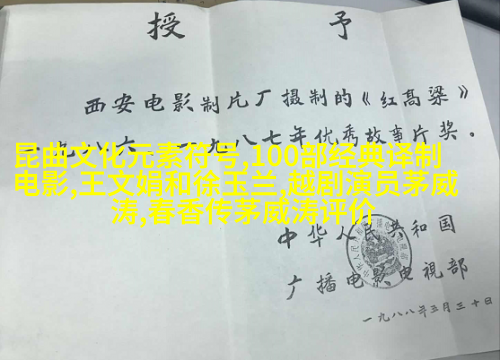 授 予
西安电影制片厂摄制的《红高粱》
九八六—一九八七年优秀故事片奖。
昆曲文化元素符号,100部经典译制
电影,王文娟和徐玉兰,越剧演员茅威
涛,春香传茅威涛评价
中华人民共和国
广播电影电视部
一九八八年三月三十日